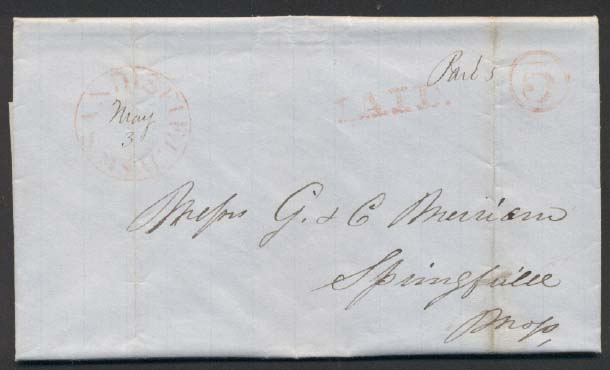 Paid 5
5
LATE.
May
3
Messrs G. & C Merriam
Springfield
Mass,